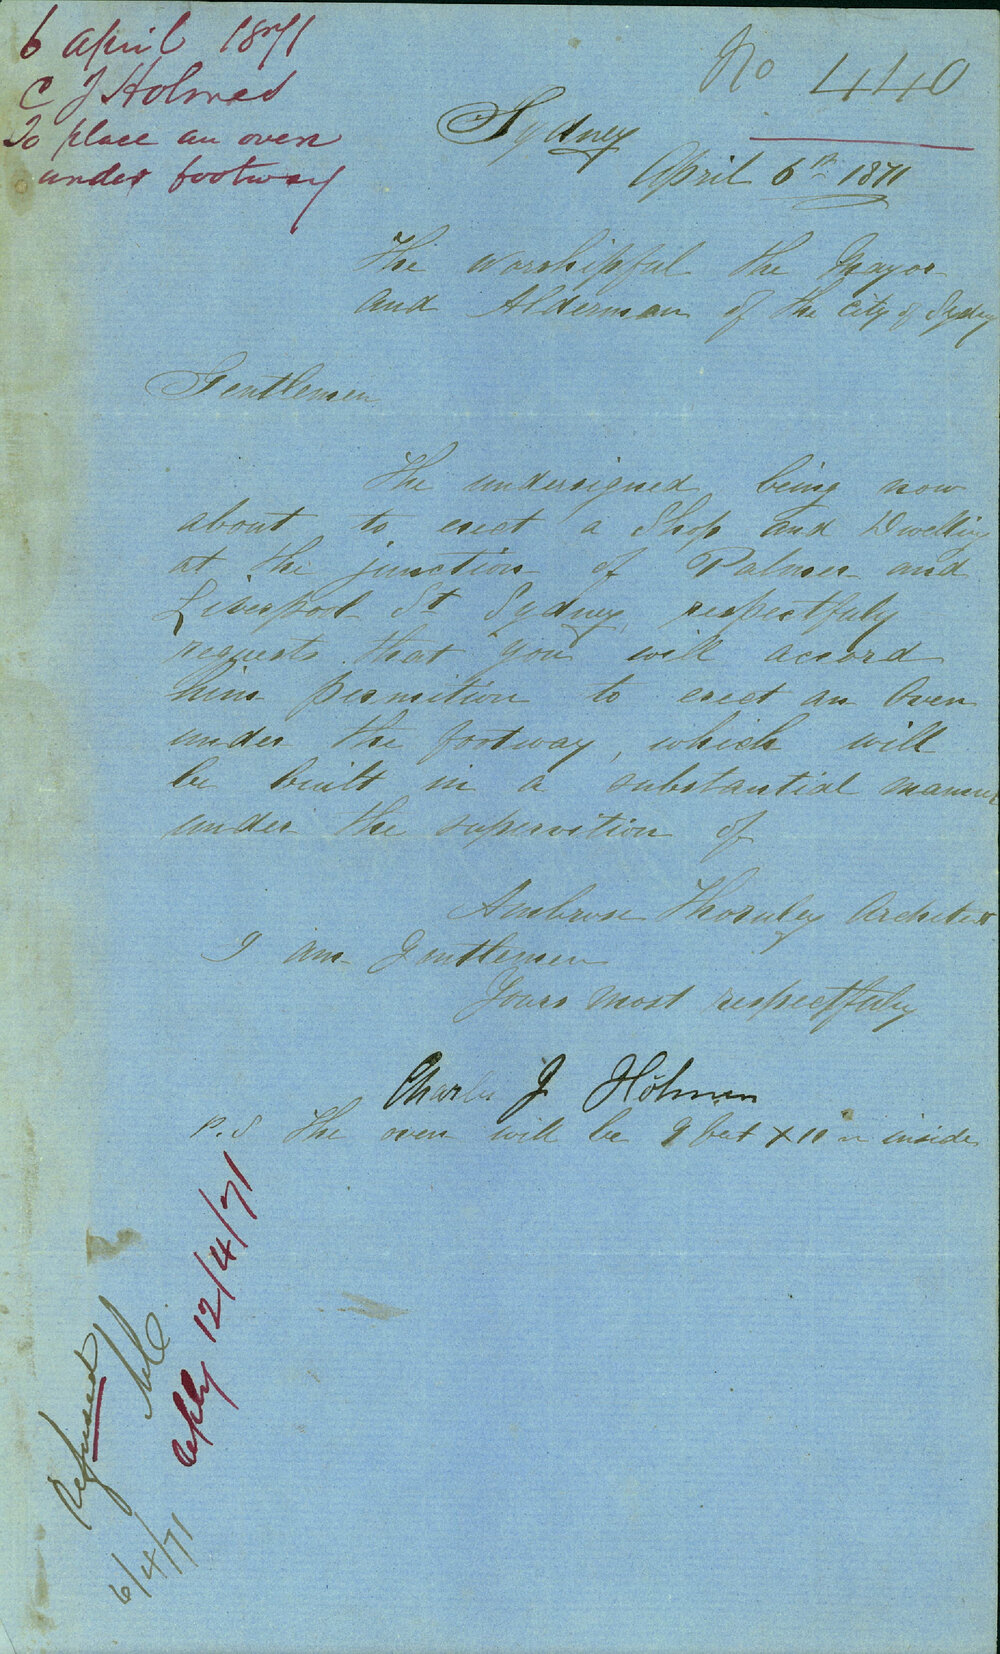 6 April 1871
C J Holmes
To place an oven
under footway
No 440
Sydney
April 6th 1871
The Worshipful the Mayor
and Alderman of the City of Sydney
Gentlemen
The undersigned being now
about to erect a Shop and Dwelling
at the junction of Palmer and
Liverpool St Sydney, respectfuly
requests that you will accord
him permition to erect an Oven
under the footway, which will
be built in a substantial manner
under the supervition of
Ambrose Thornley Architect
I am Gentlemen
Yours most respectfuly
Charles J Holmes
P.S The oven will be 9 feet x 10 inside
Refused
6/4/71
reply 12/4/71